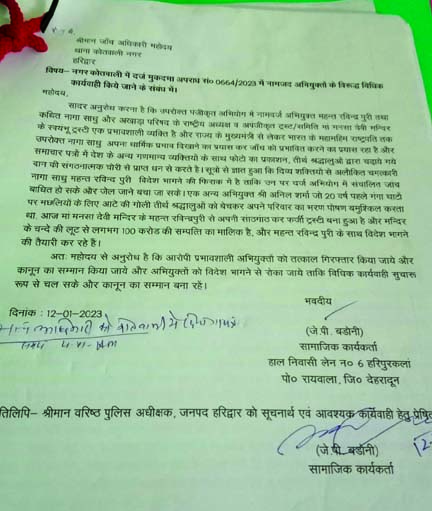 श्रीमान जाँच अधिकारी महोदय
थाना कोतवाली नगर
हरिद्वार
विषय– नगर कोतवाली में दर्ज मुकदमा अपराध सं० 0664/2023 में नामजद अभियुक्तों के विरूद्ध विधिक
कार्यवाही किये जाने के संबंध में।
महोदय,
सादर अनुरोध करना है कि उपरोक्त पंजीकृत अभियोग में नामदर्ज अभियुक्त महन्त रविन्द्र पुरी तथा
कथित नागा साधु और अखाड़ा परिषद के राष्ट्रीय अध्यक्ष व अपंजीकृत ट्रस्ट/समिति मा मनसा देवी मन्दिर
के स्वयभू ट्रस्टी एक प्रभावशाली व्यक्ति है और राज्य के मुख्यमंत्री से लेकर भारत के महामहिम राष्ट्रपति तक
उपरोक्त नागा साधु अपना धार्मिक प्रभाव दिखाने का प्रयास कर जाँच को प्रभावित करने का प्रयास रहा है और
समाचार पत्रों में देश के अन्य गणमान्य व्यक्तियों के साथ फोटो का प्रकाशन, तीर्थ श्रद्धालुओं द्वारा चढ़ाये गये
दान की संगठनात्मक चोरी से प्राप्त धन से करते है। सूत्रो से ज्ञात हुआ कि दिव्य शक्तियों से अलौकित चमत्कारी
नागा साधु महन्त रविन्द्र पुरी विदेश भागने की फिराक में है ताकि उन पर दर्ज अभियोग में संचालित जांच
बाधित हो सके और जेल जाने बचा जा सके। एक अन्य अभियुक्त श्री अनिल शर्मा जो 20 वर्ष पहले गंगा घाटो
पर मछलियो के लिए आटे की गोली तीर्थ श्रद्धालुओं को बेचकर अपने परिवार का भरण पोषण बमुश्किल करता
था, आज मां मनसा देवी मन्दिर के महन्त रविन्द्रपुरी से अपनी सांठगांठ कर फर्जी ट्रस्टी बना हुआ है और मन्दिर
के चन्दे की लूट से लगभग 100 करोड की सम्पति का मालिक है, और महन्त रविन्द्र पुरी के साथ विदेश भागने
की तैयारी कर रहे है।
अतः महोदय से अनुरोध है कि आरोपी प्रभावशाली अभियुक्तों को तत्काल गिरफ्तार किया जाये और
कानून का सम्मान किया जाये और अभियुक्तों को विदेश भागने से रोका जाये ताकि विधिक कार्यवाही सुचारू
रूप से चल सके और कानून का सम्मान बना रहें।
भवदीय
दिनांक : 12-01-2023
(जे.पी. बडोनी)
सामाजिक कार्यकर्ता
हाल निवासी लेन न० 6 हरिपुरकलां
पो० रायवाला, जि० देहरादून
तिलिपि– श्रीमान वरिष्ठ पुलिस अधीक्षक, जनपद हरिद्वार को सूचनार्थ एवं आवश्यक कार्यवाही हेतु प्रेषित
(जे.पी. बडोनी)
सामाजिक कार्यकर्ता